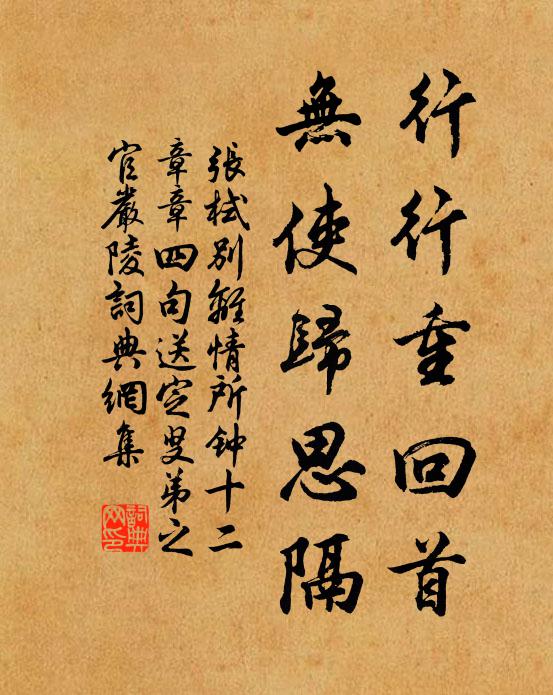 行行重回首
無使歸思隔
張栻別離情所钟十二
章章四句送定叟弟之
官嚴陵詞典網集
詞典网印